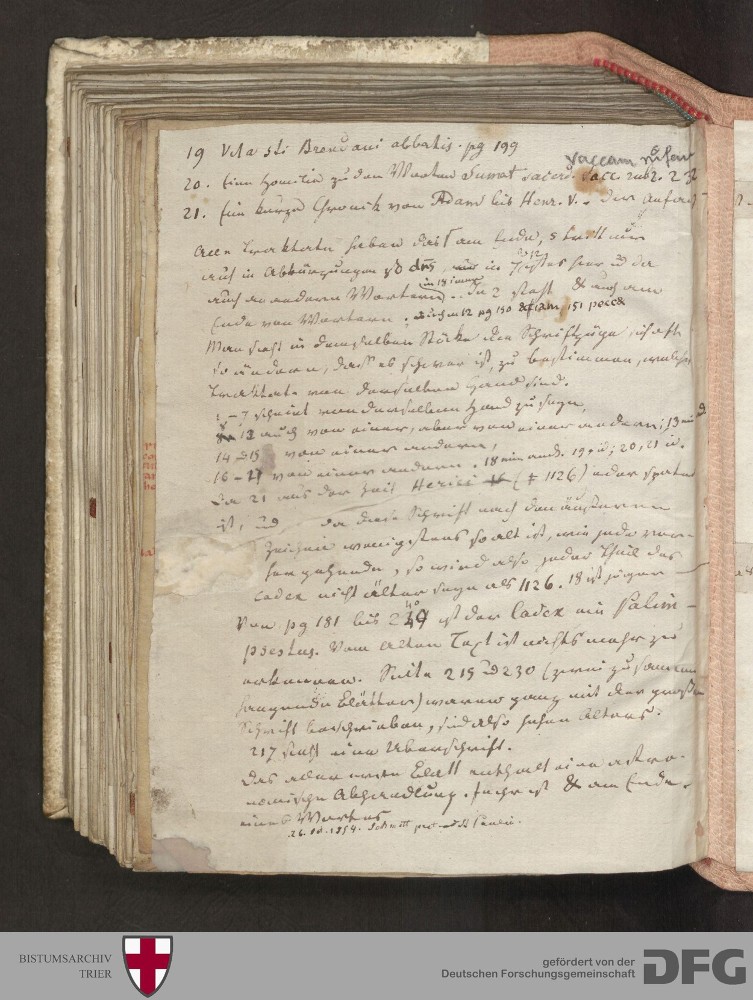 19 Vita sti Brendani abbatis. pg 199
vaccam rufam
20. Eine Homilie zu den Worten Sumat sacerd. vacc. rub. 232
21. Eine kurze Chronik von Adam bis Henr. V. der Anfang
Alle Traktate haben das ſ am Ende, s steht nur
auch in Abkürzungen
auch an anderen Wörtern. in 18 immer. In 2 steht & auch am
Ende von Wörtern, auch in 12 pg 150 &iam, 151 pecc&
Man sieht in demselben Stücke die Schriftzüge sich oft
so ändern, daß es schwer ist, zu bestimmen, welche
Traktate von derselben Hand sind.
1–7 scheint von derselben Hand zu seyn,
12 auch von einer, aber von einer anderen; 13
14–15 von einer anderen,
16–17 von einer anderen. 18 19 id; 20, 21 id.
Da 21 aus der Zeit Henrici (‡ 1126) oder später
ist, und da diese Schrift nach den äußeren
Zeichen wenigstens so alt ist, wie jede vor-
hergehende, so wird also jeder Theil des
Codex nicht älter seyn als 1126. 18 ist jünger
Von pg 181 bis 240 ist der Codex ein Palim-
psestus. Vom alten Text ist nichts mehr zu
erkennen. Seite 215 und 230 (zwei zusammen
hangende Blätter) waren ganz mit der großen
Schrift beschrieben, sind also hohen Alters.
217 steht eine Überschrift.
Das allererste Blatt enthält eine astro-
nomische Abhandlung. Auch er ist & am Ende
eines Wortes
26. 1854. Schmitt St Paulin.
BISTUMSARCHIV
TRIER
gefördert von der
Deutschen Forschungsgemeinschaft
DFG